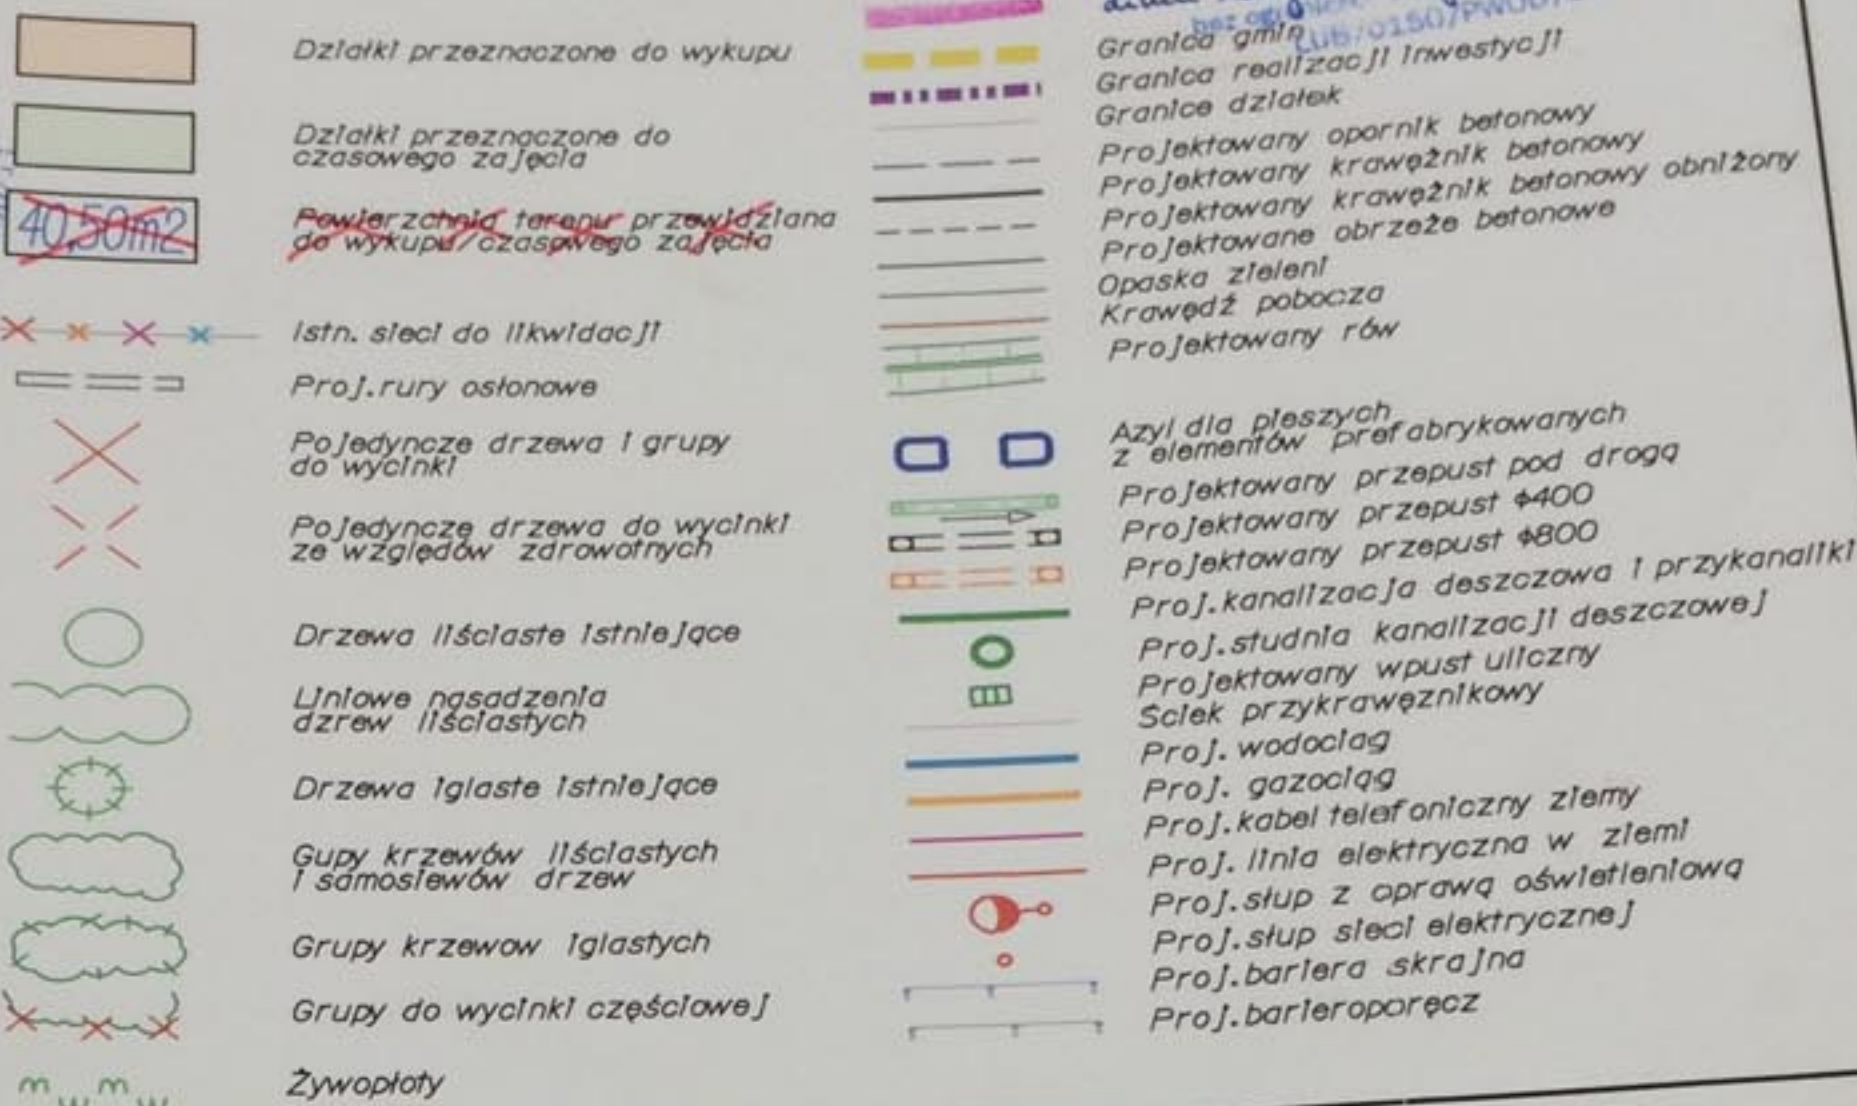 Działki przeznaczone do wykupu
Działki przeznaczone do
czasowego zajęcia
40,50m2
Powierzchnia terenu przewidziana
do wykupu/czasowego zajęcia
Istn. sieci do likwidacji
Proj.rury osłonowe
Pojedyncze drzewa i grupy
do wycinki
Pojedyncze drzewa do wycinki
ze względów zdrowotnych
Drzewa liściaste istniejące
Liniowe nasadzenia
dzrew liściastych
Drzewa iglaste istniejące
Gupy krzewów liściastych
i samosiewów drzew
Grupy krzewow iglastych
Grupy do wycinki częściowej
Żywopłoty
Granica gmin
Granica realizacji inwestycji
Granice działek
Projektowany opornik betonowy
Projektowany krawężnik betonowy
Projektowany krawężnik betonowy obniżony
Projektowane obrzeże betonowe
Opaska zieleni
Krawędź pobocza
Projektowany rów
Azyl dla pieszych
z elementów prefabrykowanych
Projektowany przepust pod drogą
Projektowany przepust ϕ400
Projektowany przepust ϕ800
Proj.kanalizacja deszczowa i przykanaliki
Proj.studnia kanalizacji deszczowej
Projektowany wpust uliczny
Ściek przykrawęznikowy
Proj. wodociąg
Proj. gazociąg
Proj.kabel telefoniczny ziemy
Proj. linia elektryczna w ziemi
Proj.słup z oprawą oświetleniową
Proj.słup sieci elektrycznej
Proj.bariera skrajna
Proj.barieroporęcz